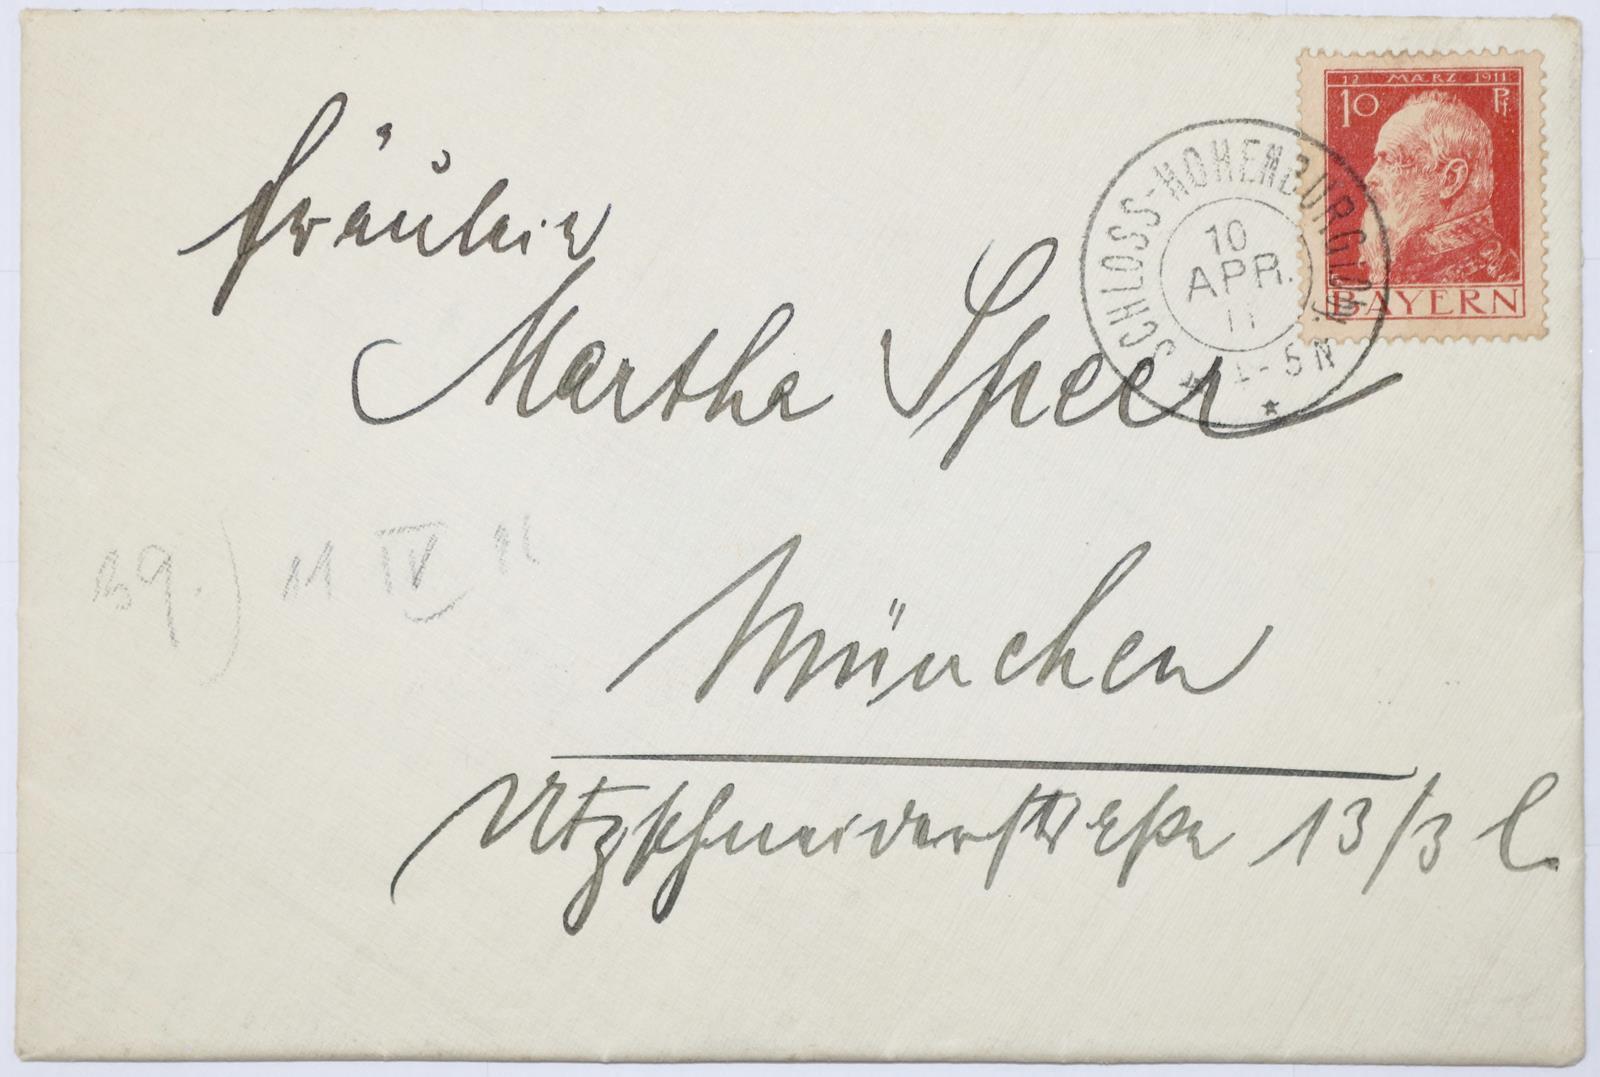 12 MÆRZ 1911
10 Pf.
BAYERN
SCHLOSS-HOHENBURG
10
APR.
11
4-5 N
Fräulein
Martha Speer
39.) 11 IV 11
München
Utzschneiderstraße 13/3 l.